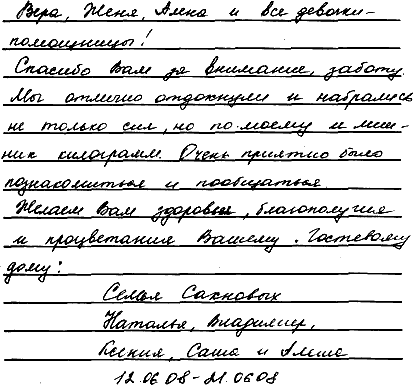 Вера, Женя, Алена и все девочки-
помощницы!
Спасибо Вам за внимание, заботу.
Мы отлично отдохнули и набрались
не только сил, но по-моему и лиш-
них килограмм. Очень приятно было
познакомиться и пообщаться.
Желаем Вам здоровья, благополучия
и процветания Вашему Гостевому
дому!
Семья Сахновых
Наталья, Владимир,
Ксения, Саша и Алеша
12.06.08-21.06.08